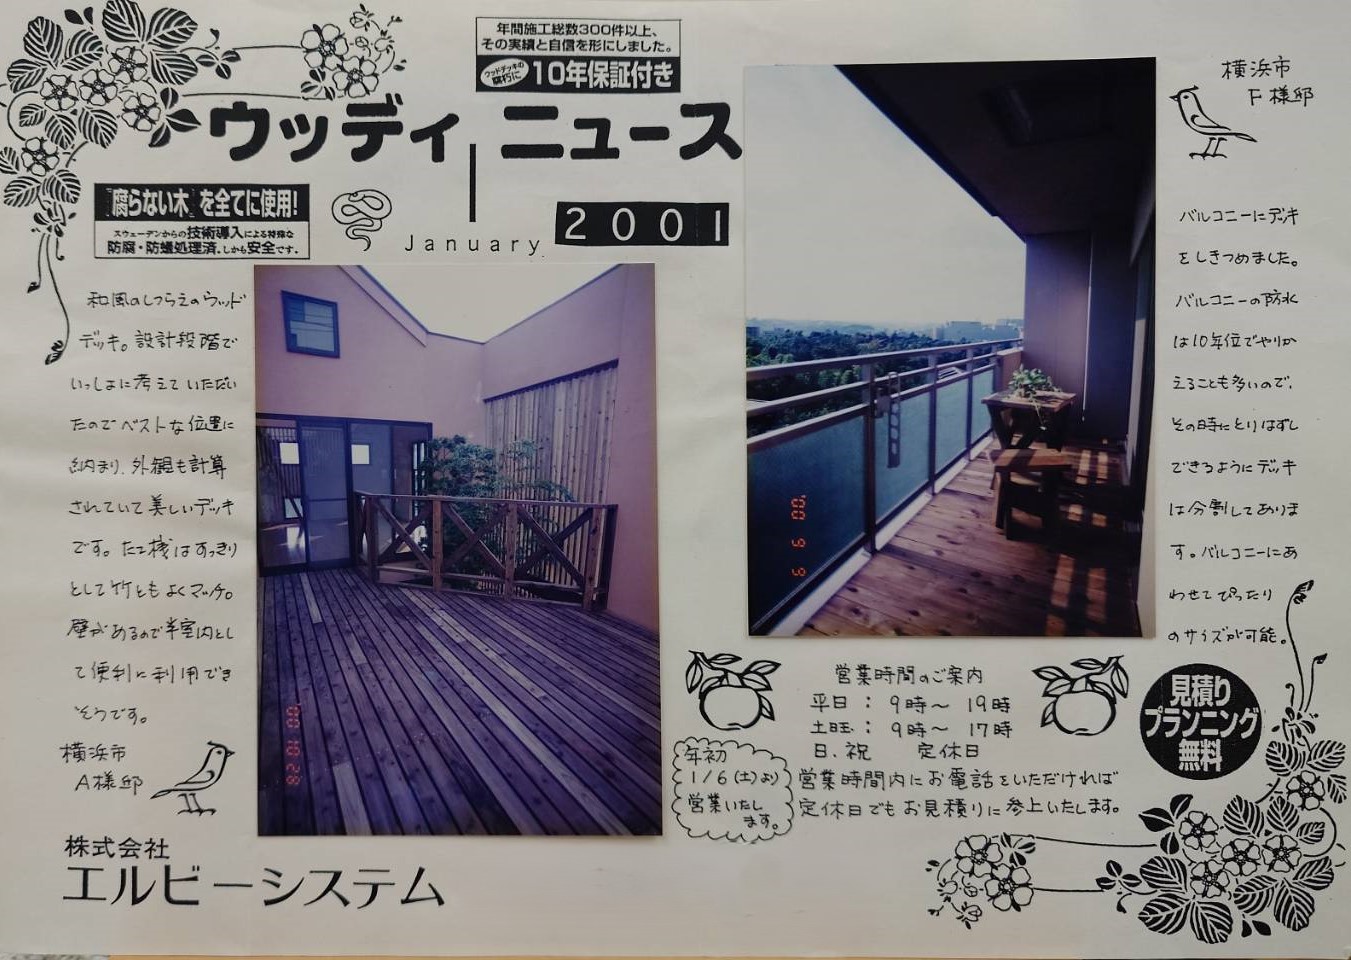 年間施工総数300件以上、
その実績と自信を形にしました。
ウッドデッキの
腐朽に
10年保証付き
ウッディ ニュース
「腐らない木」を全てに使用!
スウェーデンからの技術導入による特殊な
防腐・防蟻処理済。しかも安全です。
January 2001
和風のしつらえのウッド
デッキ。設計段階で
いっしょに考えていただい
たのでベストな位置に
納まり、外観も計算
されていて美しいデッキ
です。たて桟はすっきり
として竹ともよくマッチ。
壁があるので半室内とし
て便利に利用でき
そうです。
横浜市
A様邸
'00 10 28
株式会社
エルビーシステム
横浜市
F様邸
バルコニーにデッキ
をしきつめました。
バルコニーの防水
は10年位でやりか
えることも多いので、
その時にとりはずし
できるようにデッキ
は分割してありま
す。バルコニーにあ
わせてぴったり
のサイズが可能。
'00 9 9
営業時間のご案内
平日 : 9時〜 19時
土曜 : 9時〜 17時
日、祝 定休日
営業時間内にお電話をいただければ
定休日でもお見積りに参上いたします。
年初
1/6(土)より
営業いたし
ます。
見積り
プランニング
無料